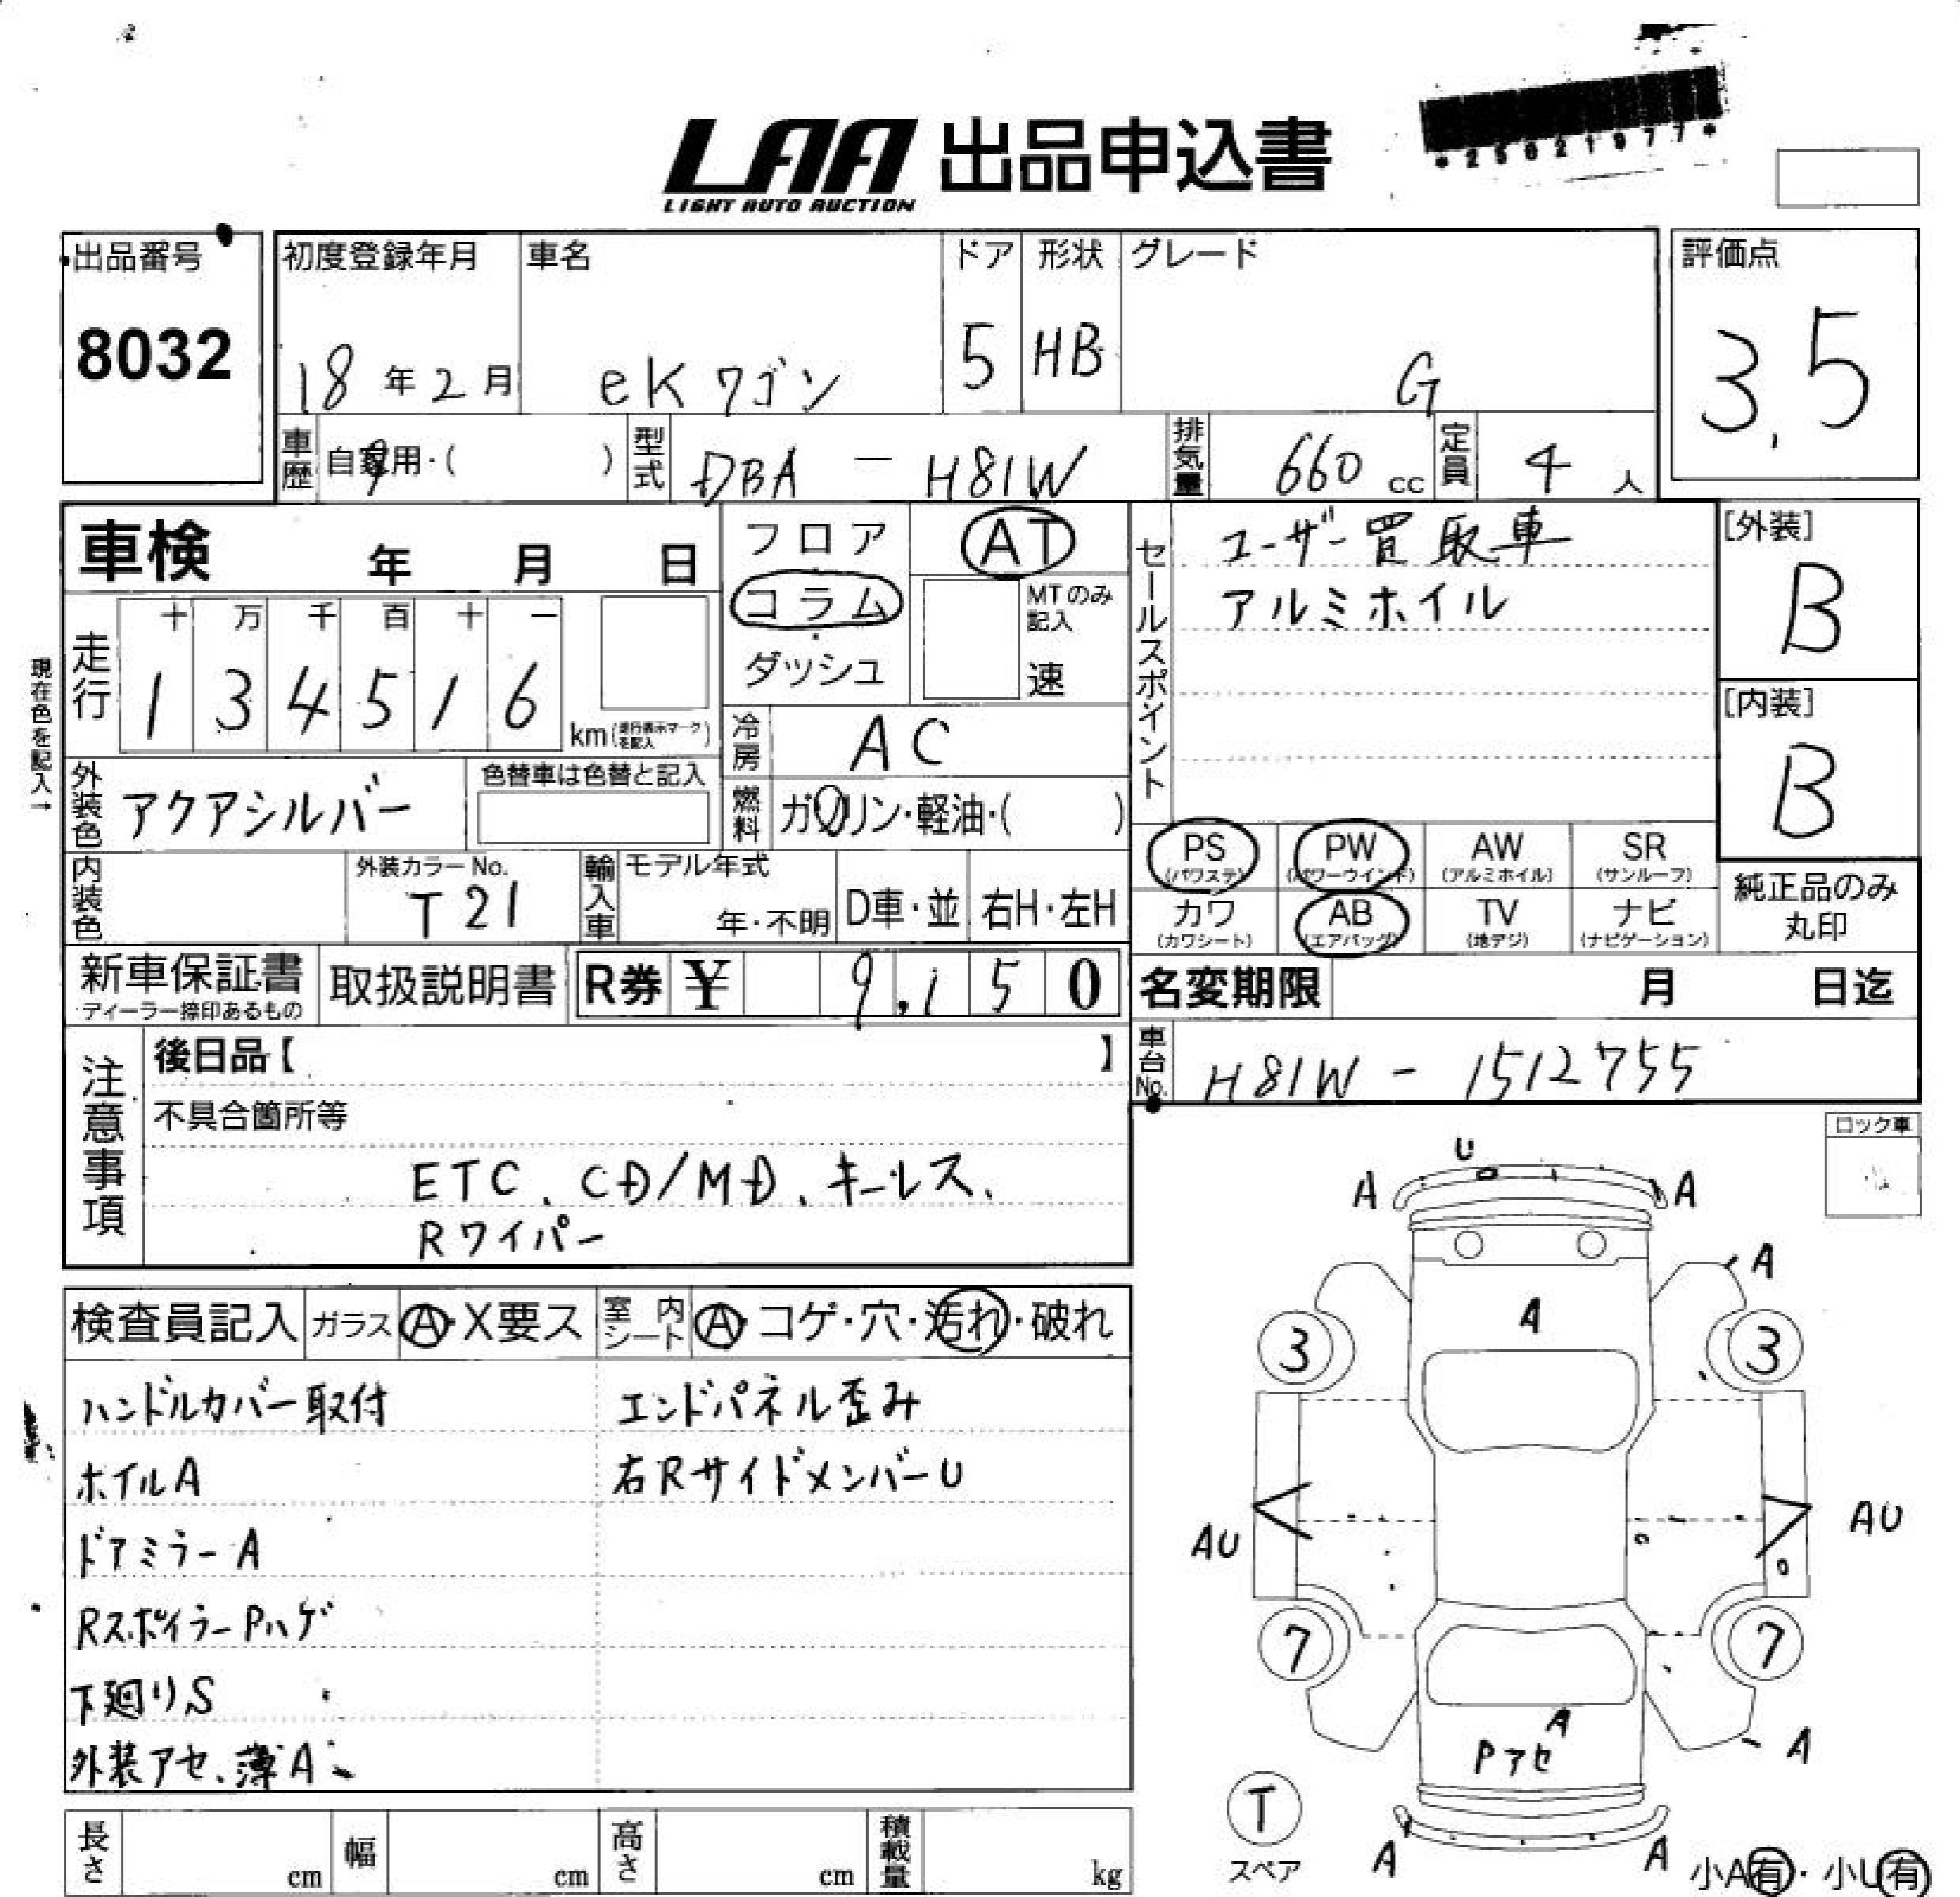 LAA 出品申込書
LIGHT AUTO AUCTION
*25021977*
出品番号
8032
初度登録年月
18年2月
車名
eKワゴン
ドア
5
形状
HB
グレード
G
評価点
3.5
車歴
自家用・( )
型式
DBA - H81W
排気量
660 cc
定員
4 人
車検 年 月 日
現在色を記入→
走行
十 万 千 百 十 一
1 3 4 5 1 6
km(走行表示マークを記入)
フロア
コラム
ダッシュ
AT
MTのみ記入
速
冷房
AC
燃料
ガソリン・軽油・( )
セールスポイント
ユーザー買取車
アルミホイル
[外装]
B
[内装]
B
外装色
アクアシルバー
色替車は色替と記入
内装色
外装カラーNo.
T21
輸入車
モデル年式
年・不明
D車・並
右H・左H
PS
(パワステ)
PW
(パワーウインド)
AW
(アルミホイル)
SR
(サンルーフ)
カワ
(カワシート)
AB
(エアバッグ)
TV
(地デジ)
ナビ
(ナビゲーション)
純正品のみ
丸印
新車保証書
ディーラー捺印あるもの
取扱説明書
R券 ¥ 9,150
名変期限 月 日迄
車台No.
H81W - 1512755
注意事項
後日品【 】
不具合箇所等
ETC、CD/MD、キーレス、
Rワイパー
ロック車
検査員記入
ガラス
A・X要ス
室内シート
A・コゲ・穴・汚れ・破れ
ハンドルカバー取付
ホイルA
ドアミラーA
RスポイラーPハゲ
下廻りS
外装アセ、薄A
エンドパネル歪み
右RサイドメンバーU
U
A A
A
A
3 3
AU AU
7 7
A
Pアセ
A
T
スペア
A A
小A有・小U有
長さ cm
幅 cm
高さ cm
積載量 kg